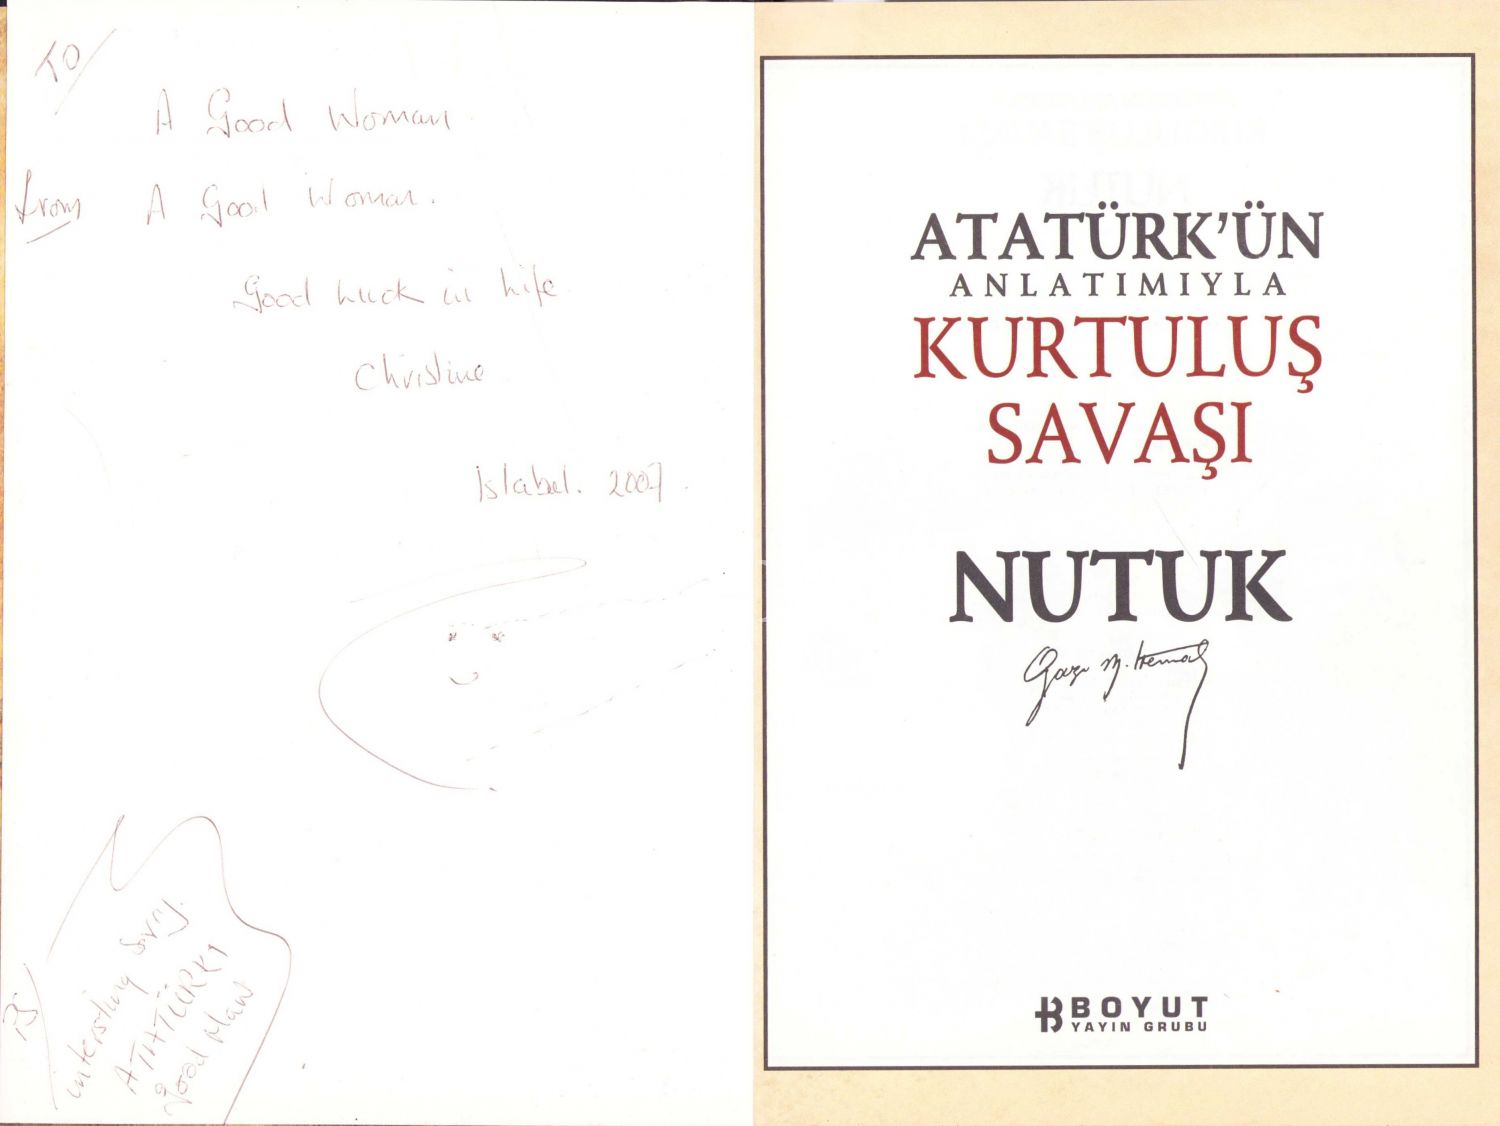 TO
A Good Woman.
from A Good Woman.
Good Luck in Life
Christine
Istabul. 2007.
PS
intersting Story.
ATATÜRK!
good Man
ATATÜRK'ÜN
ANLATIMIYLA
KURTULUŞ
SAVAŞI
NUTUK
Gazi M. Kemal
BOYUT
YAYIN GRUBU